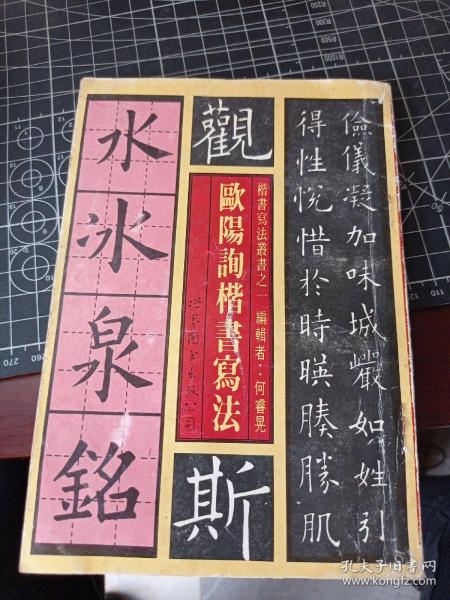 儉儀凝加味城嚴如姓引
得性悅惜於時暎膝勝肌
觀
楷書寫法叢書之一 編輯者：何睿晃
歐陽詢楷書寫法
世界图书出版公司
斯
水
冰
泉
銘
孔夫子旧书网
www.kongfz.com